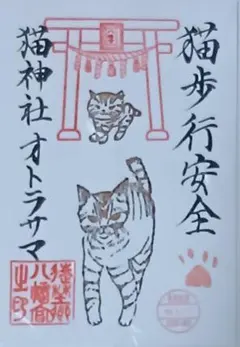 猫歩行安全
猫神社オトラサマ